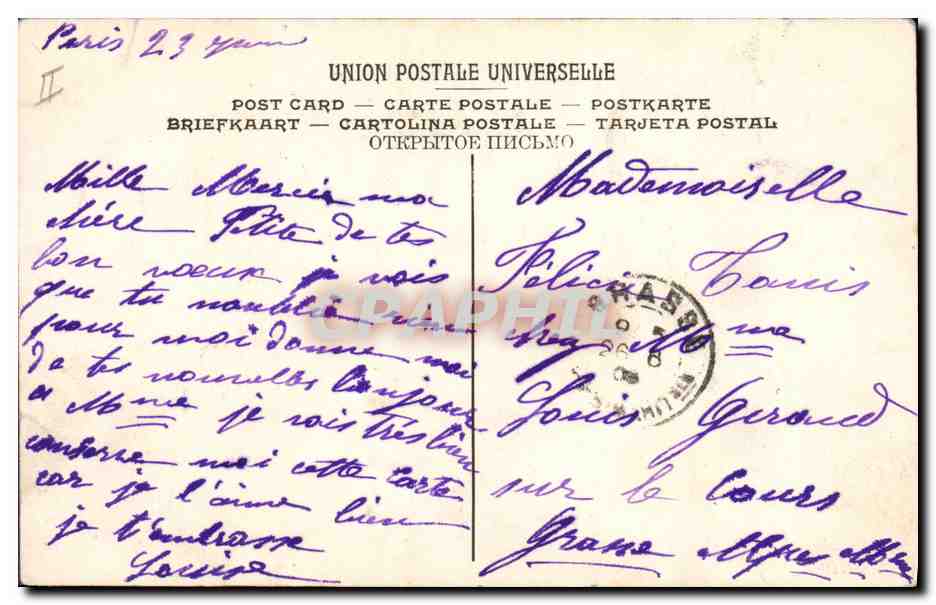 Paris 23
II
UNION POSTALE UNIVERSELLE
POST CARD — CARTE POSTALE — POSTKARTE
BRIEFKAART — CARTOLINA POSTALE — TARJETA POSTAL
ОТКРЫТОЕ ПИСЬМО
Mille Mercis ma
Petite de tes
bon voeux je vois
que tu noublie rien
pour moi donne moi
de tes nouvelles bonjour
a Mme je vois très bien
conserve moi cette Carte
car je l'aime bien
je t'embrasse
Louise
Mademoiselle
Félicie Tanis
chez Mme
Louis Giraud
sur le Cours
Grasse Alpes Mmes
GRASSE
26
CPAPHIL